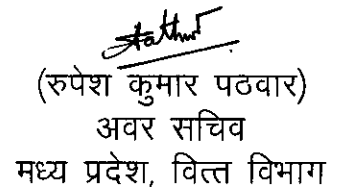 (रुपेश कुमार पठवार)
अवर सचिव
मध्य प्रदेश, वित्त विभाग